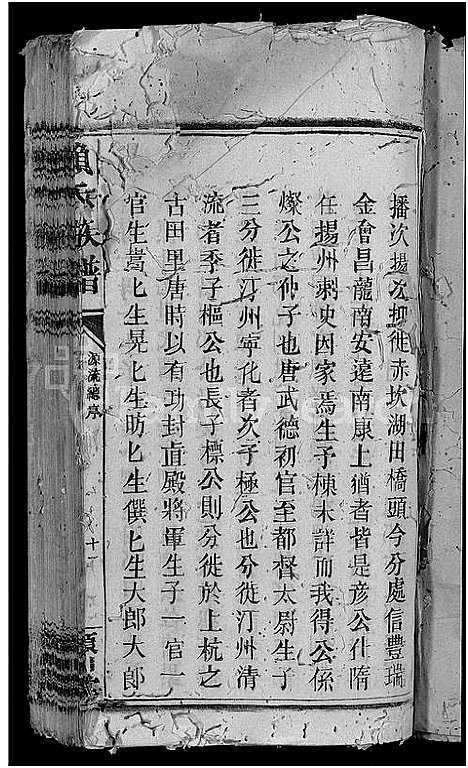 播次揚次抑徙赤坎湖田橋頭今分處信豐瑞
金會昌龍南安遠南康上猶者皆是彦公仕隋
任揚州刺史因家焉生子棟未詳而我得公係
燦公之仲子也唐武德初官至都督太尉生子
三分徙汀州寧化者次子極公也分徙汀州清
流者季子樞公也長子標公則分徙於上杭之
古田里唐時以有功封直殿將軍生子一官一
官生貴匕生晃匕生昉匕生僎匕生大郎大郎
賴氏族譜
源流總序
十一